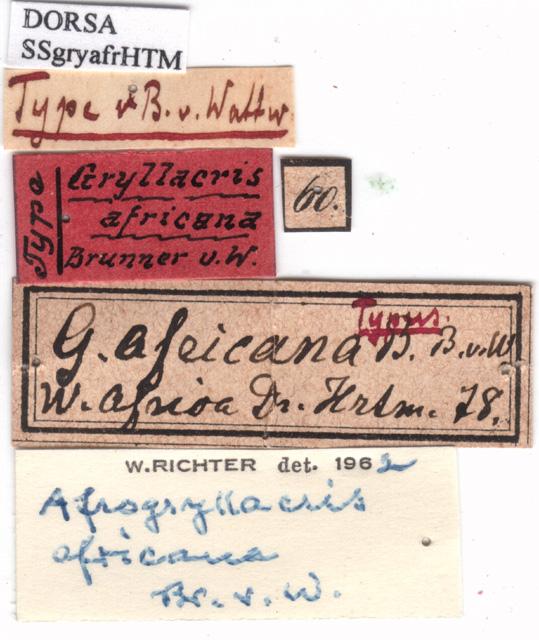 DORSA
SSgryafrHTM
Type v B. v. Wattw.
Type
Gryllacris
africana
Brunner v. W.
60.
Typus.
G. africana B. B.v.W
W. Africa Dr. Hrtm. 78.
W.RICHTER det. 1962
Afrogryllacris
africana
Br. v. W.